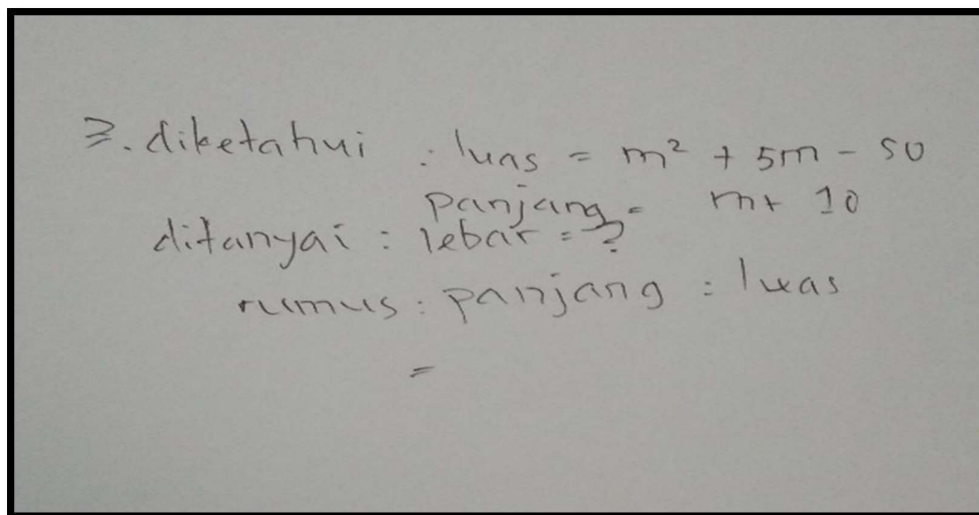 3. diketahui : luas = m² + 5m - 50
panjang = m+ 10
ditanyai : lebar = ?
rumus : panjang : luas
=